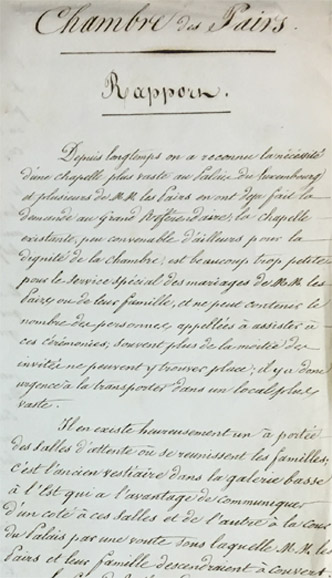 Chambre des Pairs.
Rapport.
Depuis longtemps on a reconnu la nécessité
d'une chapelle plus vaste au Palais du Luxembourg
et plusieurs de M.M. les Pairs en ont déjà fait la
demande au Grand Référendaire, la chapelle
existante, peu convenable d'ailleurs pour la
dignité de la chambre, est beaucoup trop petite
pour le service spécial des mariages de M.M. les
Pairs ou de leur famille, et ne peut contenir le
nombre des personnes appellées à assister à
ces cérémonies; souvent plus de la moitié des
invités ne peuvent y trouver place; il y a donc
urgence à la transporter dans un local plus
vaste.
Il en existe heureusement un à portée
des salles d'attente où se reunissent les familles,
c'est l'ancien vestiaire dans la galerie basse
à l'Est qui a l'avantage de communiquer
d'un coté à ces salles et de l'autre à la cour
du Palais par une voute sous laquelle M.M. les
Pairs et leur famille descendraient à couvert